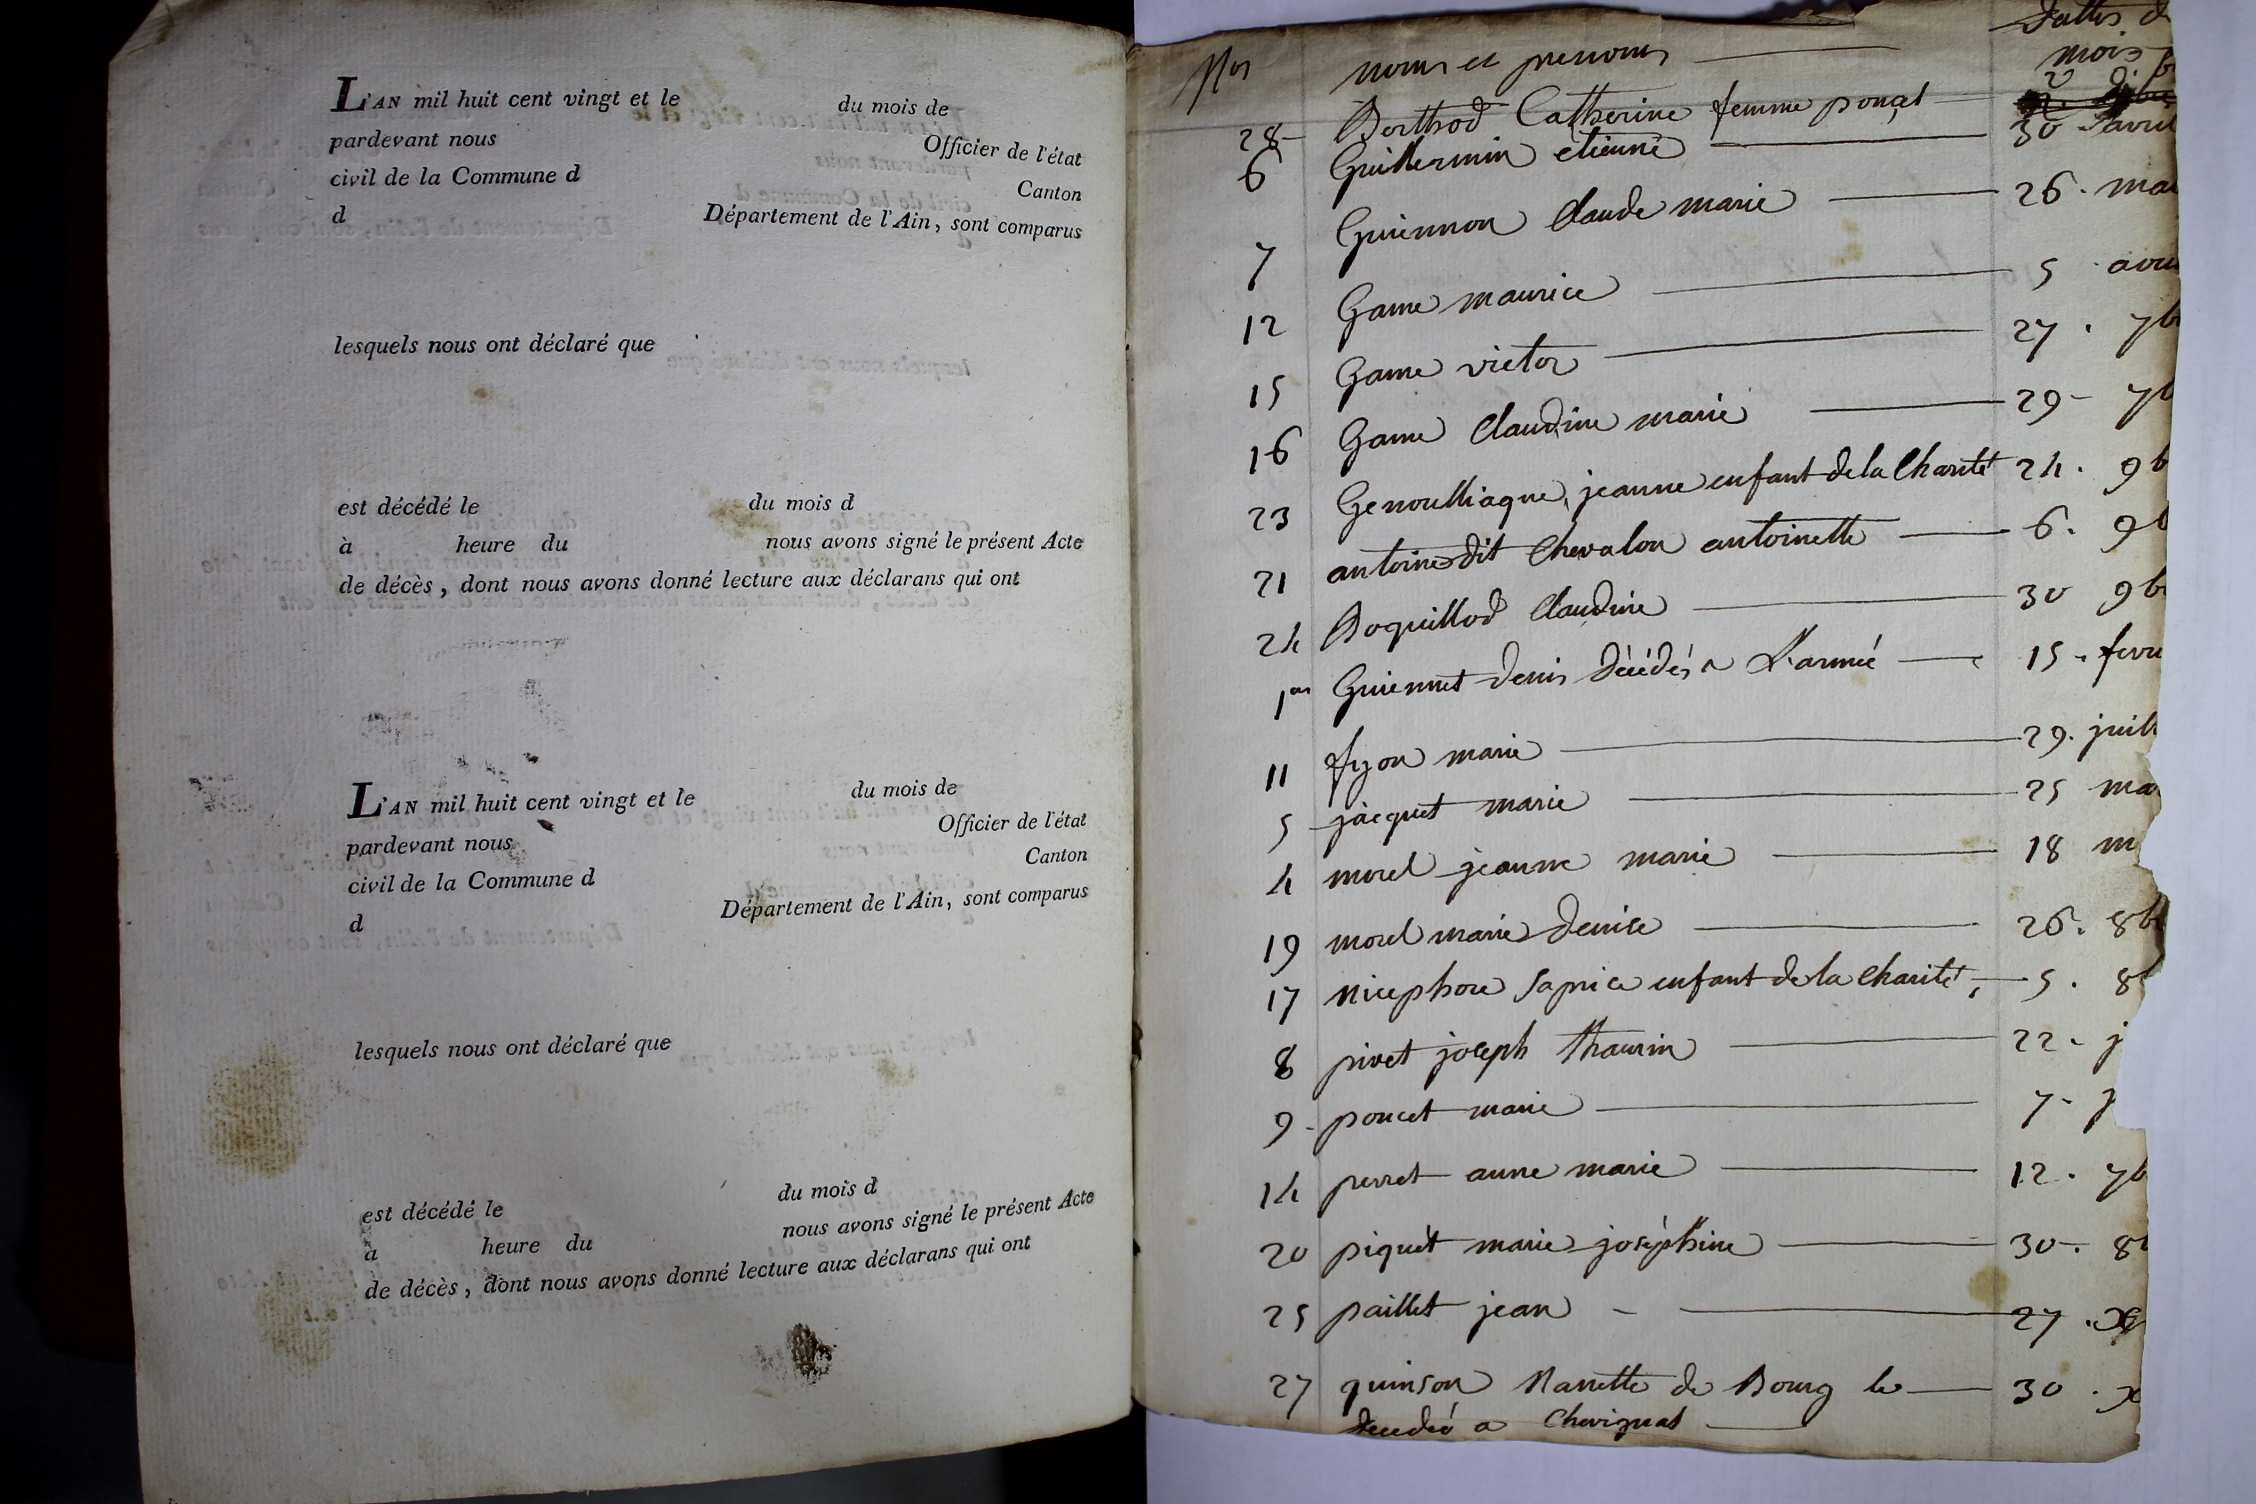 L'AN mil huit cent vingt et le du mois de
pardevant nous Officier de l'état
civil de la Commune d Canton
d Département de l'Ain, sont comparus
lesquels nous ont déclaré que
est décédé le du mois d
à heure du nous avons signé le présent Acte
de décès, dont nous avons donné lecture aux déclarans qui ont
L'AN mil huit cent vingt et le du mois de
pardevant nous Officier de l'état
civil de la Commune d Canton
d Département de l'Ain, sont comparus
lesquels nous ont déclaré que
est décédé le du mois d
à heure du nous avons signé le présent Acte
de décès, dont nous avons donné lecture aux déclarans qui ont
Nos noms et prenoms
mois
28 Berthod Catherine femme poncet
6 Guillermin etienne 30 avril
7 Guiennon Claude marie 26. mai
12 Game maurice 5
15 Game victor 27. 7b
16 Game Claudine marie 29 - 7b
23 jeanne enfant de la Charité 24. 9b
21 antoine dit Chevalon antoinette 6. 9b
24 Boquillod Claudine 30 9b
1er Guiennet denis décédé a l'armée 15. fevr
11 fyon marie 29. juill
5 jacquet marie 25 ma
4 morel jeanne marie 18 m
19 morel marie denise 26. 8b
17 nicephore saprice enfant de la Charité, 5. 8b
8 pivet joseph Thaurin 22. j
9 - poncet marie 7 - j
14 perret anne marie 12. 7b
20 piquet marie joséphine 30. 8b
25 paillet jean 27. x
27 quinson Nanette de Bourg le 30. x
decedée a Chevignat